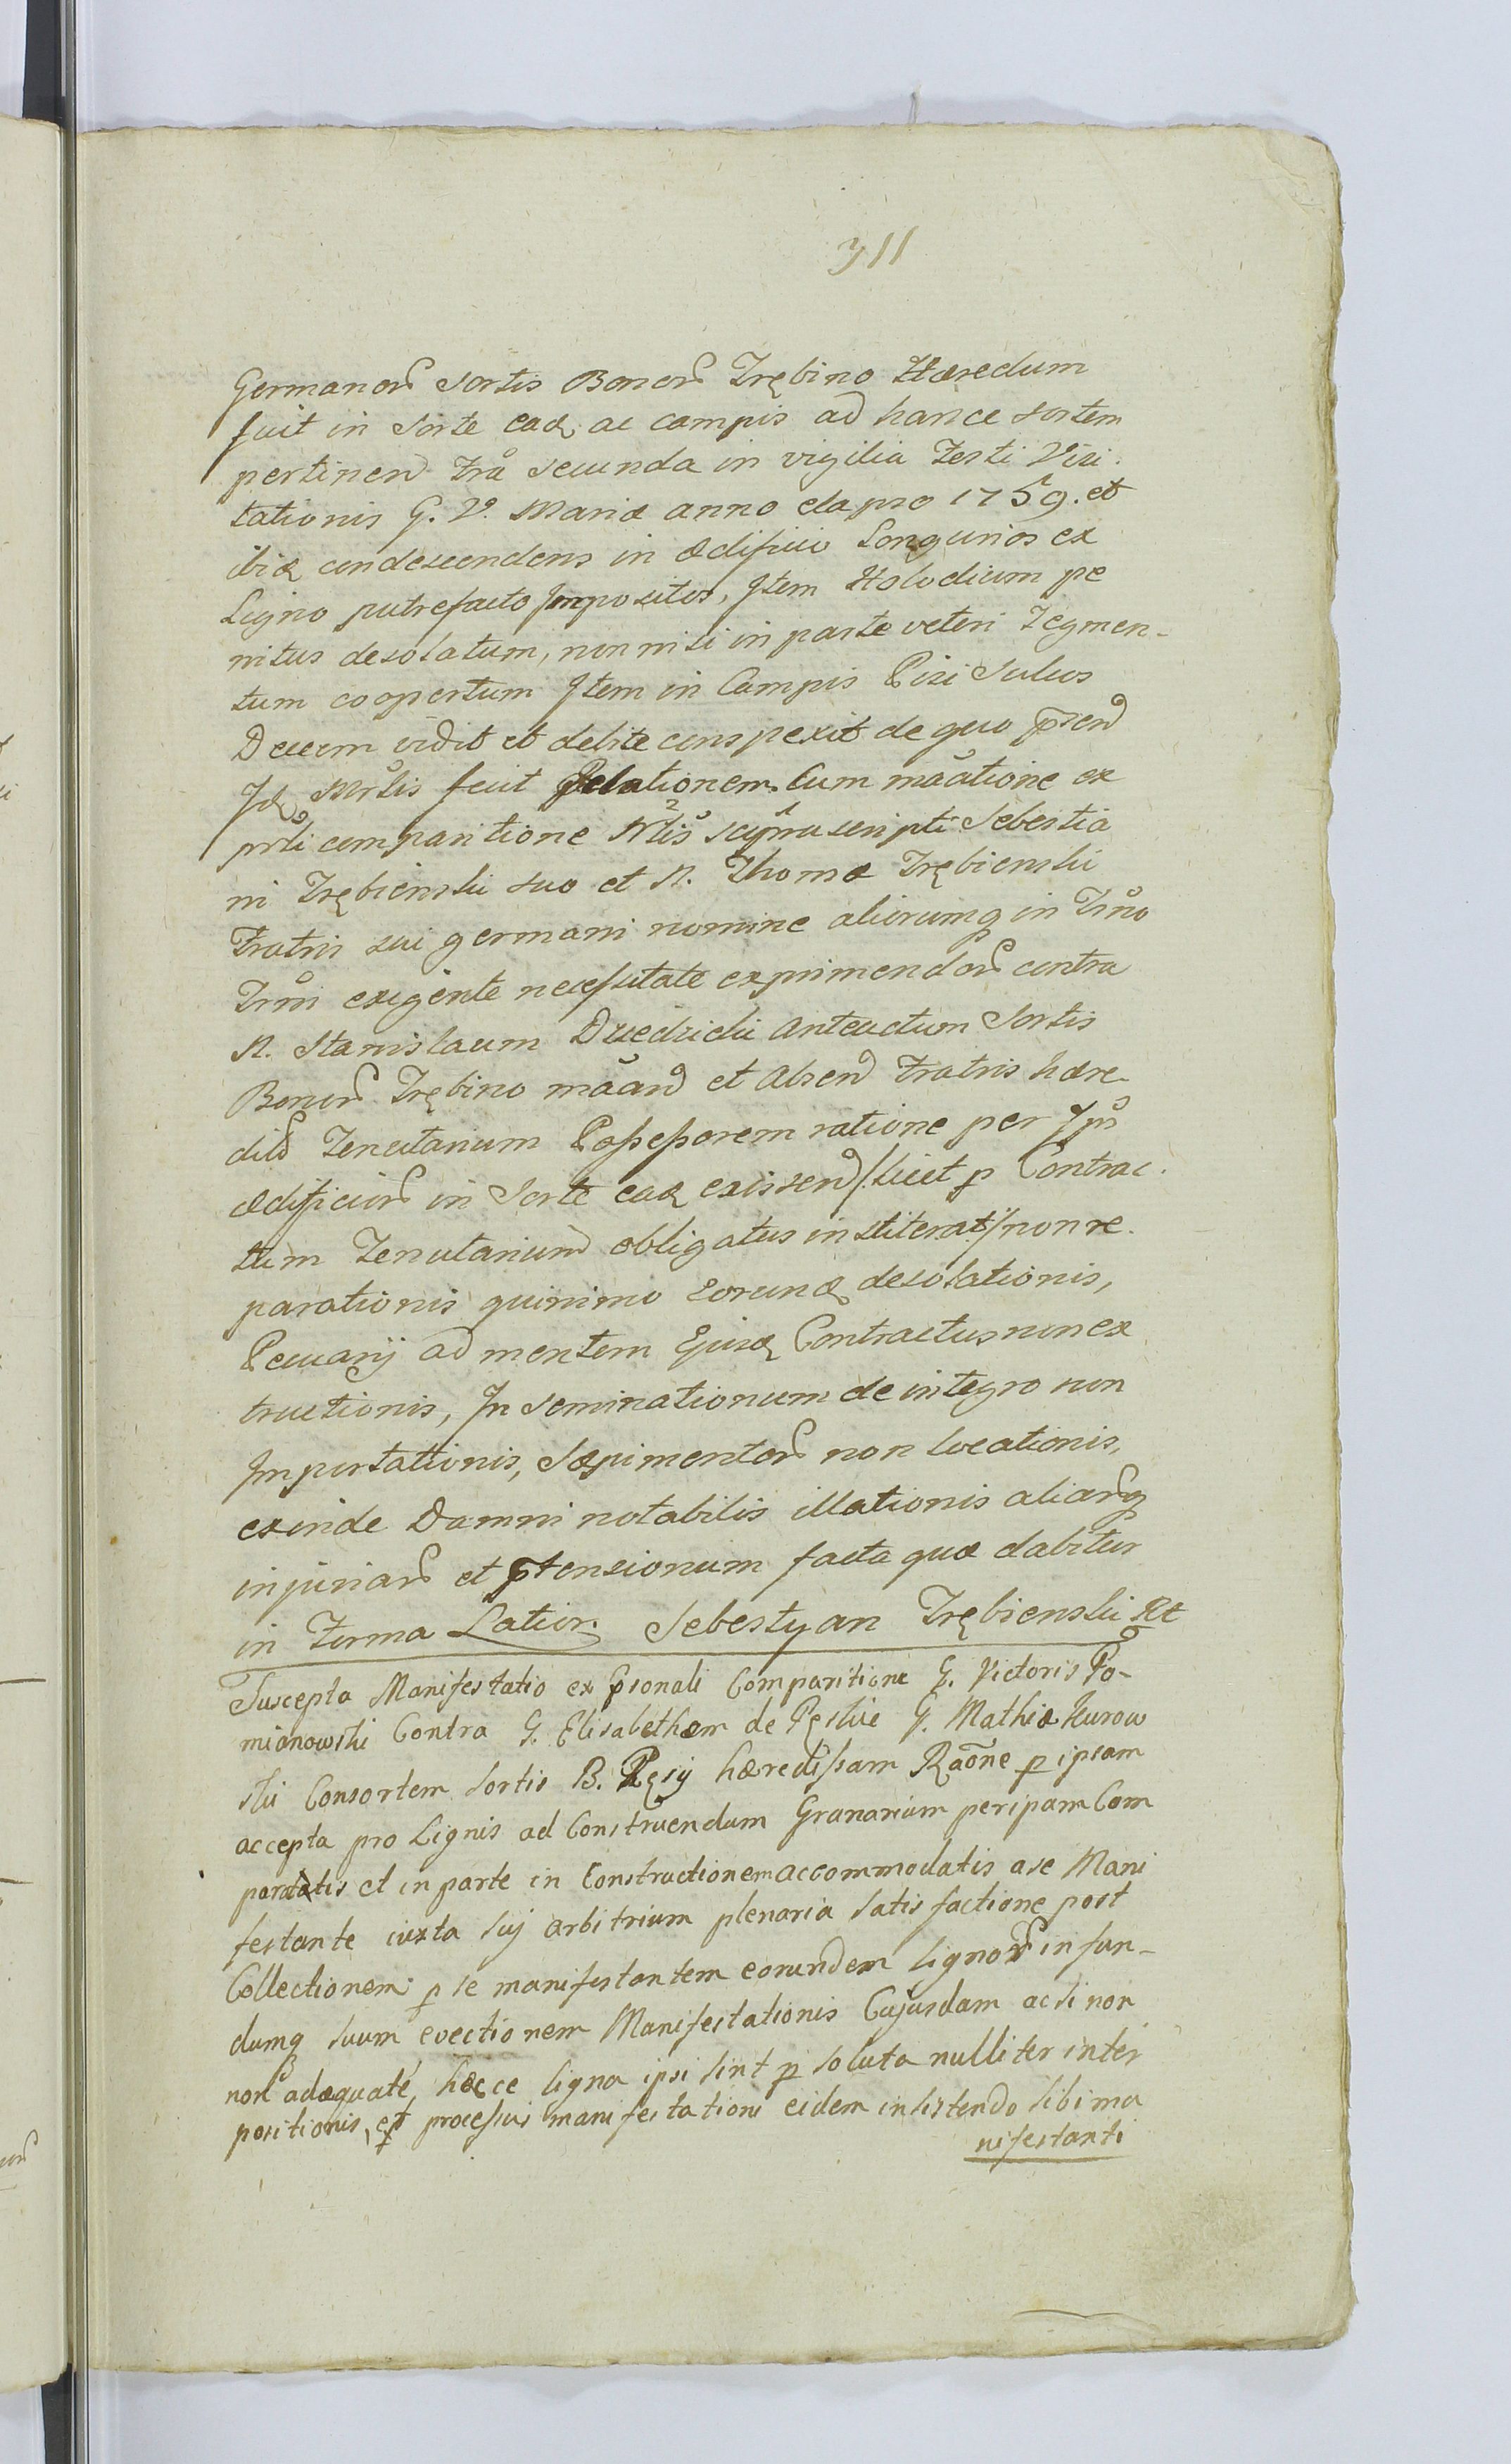 311
Germanorũ Sortis Bonorũ Trębino Hæredum
fuit in Sorte eadꝫ ac campis ad hance Sortem
pertinen̄ Fra secunda in vigilia Festi Visi-
tationis G. V. Mariæ anno elapso 1759. et
ibiꝗ condescendens in ædificio Longurios ex
Ligno putrefacto Impositos, Item Holodium pe
nitus desolatum, non nisi in parte veteri Tegmen-
tum coopertum Item in Campis Pisi Sulcos
Decem vidit et debite conspexit de quo p̄sen̄
Idꝫ Mrlis fecit Relationem. Cum mãatione ex
prli comparitione Nlis supra scripti Sebestia
ni Trębienski suo et N. Thomæ Trębienski
Fratris sui germani nomine aliorumq in Trño
Trmi exigente necessitate exprimendorũ contra
N. Stanislaum Duedzicki anteactum Sortis
Bonorũ Trębino mãan̄ et Absen̄ Fratris hære-
dit̄ Tenutarium Possessorem ratione per Ips
ædificiorũ in Sorte eadꝫ existen̄ /: licet p Contrac-
tum Tenutarium obligatus institerat :/ non re-
parationis quinimo Eorundꝫ desolationis,
Pecuarij ad mentem Ejusdꝫ Contractus non ex
tructionis, In seminationum de integro non
Importationis, Sæpimentorũ non locationis,
exinde Damni notabilis illationis aliarũq
injuriarũ et p̄tensionum facta quæ dabitur
in Forma Latior. Sebestyan Trębienski
Suscepta Manifestatio ex p̄sonali Comparitione G. Victoris Po-
mianowski Contra G. Elisabetham de Pęskie G. Mathiæ Kurow
ski Consortem Sortis B. Pęsy hæredissam Raõne p ipsam
accepta pro Lignis ad Construendum Granarium per ipsam Com
paratatis et in parte in Constructionem accommodatis a se Mani
festante iuxta sui arbitrium plenaria satis factione post
Collectionem p se manifestantem eorundem lignorũ in fun-
dumq suum evectionem Manifestationis Cujusdam acsi non
non adæquaté, hæcce ligna ipsi sint p soluta nulliter inter
positionis, et processus manifestationi eidem insistendo sibi ma
nifestanti